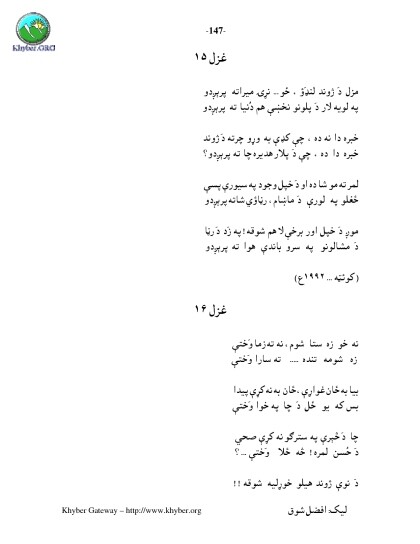 -147-
Khyber.ORG
غزل ۱۵
مزل دَ ژوند لنډؤ ، خو... نړۍ ميراته پرېږدو
په لويه لار دَ پلونو نخښې هم دُنيا ته پرېږدو
خبره دا نه ده ، چې کډې به وړو چرته دَ ژوند
خبره دا ده ، چې دَ پلار هديره چا ته پرېږدو؟
لمر ته مو شا ده او دَ خپل وجود په سيوري پسې
ځغلو په لورې دَ ماښام ، رڼاؤې شا ته پرېږدو
موږ دَ خپل اور برخې لا هم شوقه! په زد دَ رڼا
دَ مشالونو په سرو باندې هوا ته پرېږدو
(کوئټه ... ۱۹۹۲ع)
غزل ۱۶
نه خو زه ستا شوم ، نه ته زما وَختې
زه شومه تنده .... ته سارا وَختې
بيا به ځان غواړې ، ځان به نه کړې پيدا
بس که يو ځل دَ چا په خوا وَختې
چا دَ څېرې په سترګو نه کړې صحي
دَ حُسن لمره! څه خلا وَختې ...؟
دَ نوې ژوند هيلو خوړليه شوقه !!
Khyber Gateway – http://www.khyber.org
ليک: افضل شوق